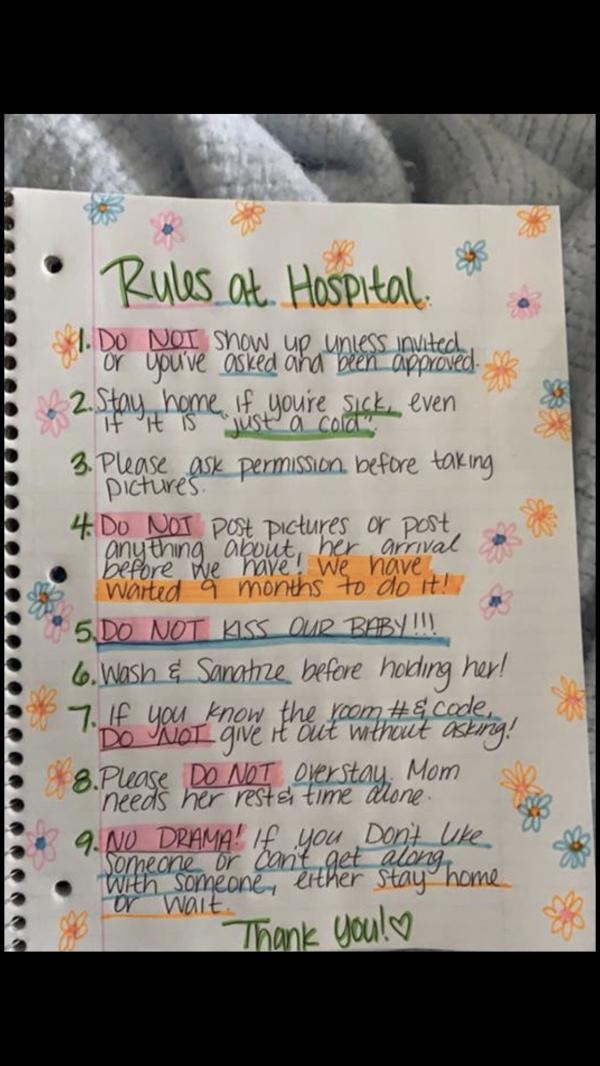 Rules at Hospital.
1. DO NOT show up unless invited
or you've asked and been approved.
2. Stay home if you're sick, even
if it is "just a cold".
3. Please ask permission before taking
pictures.
4. DO NOT post pictures or post
anything about her arrival
before we have! We have
waited 9 months to do it!
5. DO NOT KISS OUR BABY!!!
6. Wash & Sanatize before holding her!
7. If you know the room # & code,
DO NOT give it out without asking!
8. Please DO NOT overstay. Mom
needs her rest & time alone.
9. NO DRAMA! If you Don't like
someone or can't get along
with someone, either stay home
or wait.
Thank You!♡